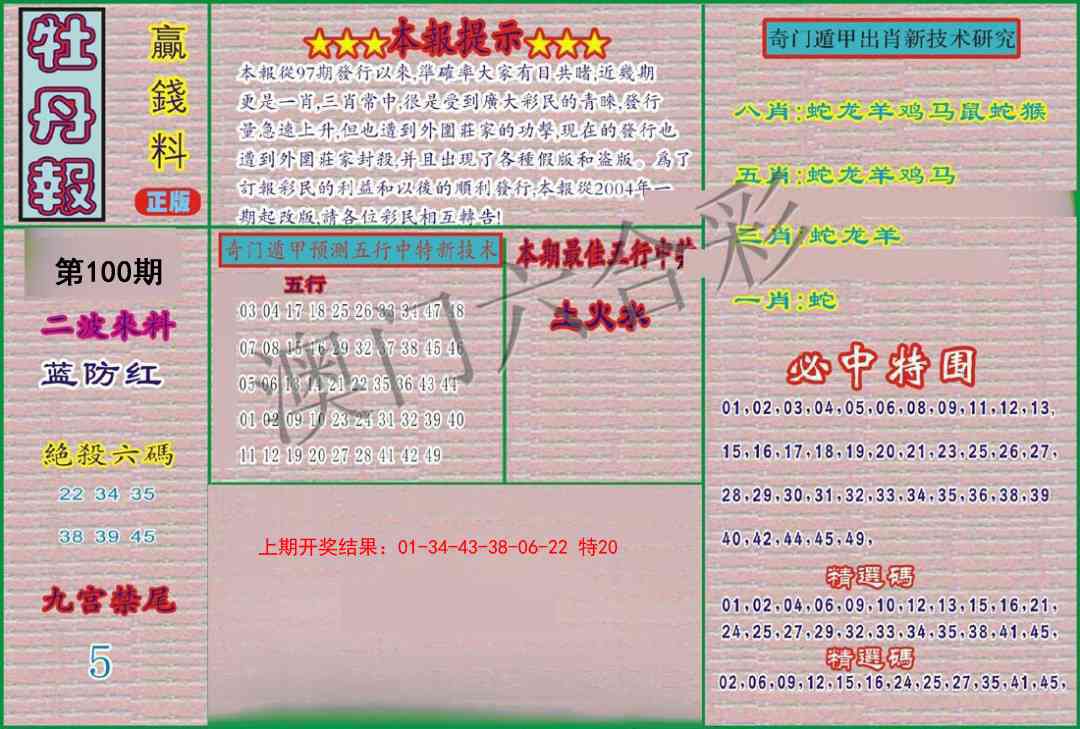 牡丹報
贏錢料
正版
★★★本報提示★★★
本報從97期發行以來,準確率大家有目共睹,近幾期
更是一肖,三肖常中,很是受到廣大彩民的青睞,發行
量急速上升,但也遭到外圍莊家的功擊,現在的發行也
遭到外圍莊家封殺,并且出現了各種假版和盗版。爲了
訂報彩民的利益和以後的順利發行,本報從2004年一
期起改版,請各位彩民相互轉告!
奇门遁甲出肖新技术研究
八肖:蛇龙羊鸡马鼠蛇猴
五肖:蛇龙羊鸡马
三肖:蛇龙羊
一肖:蛇
第100期
二波來料
蓝防红
絕殺六碼
22 34 35
38 39 45
九宫禁尾
5
奇门遁甲预测五行中特新技术
五行
03 04 17 18 25 26 33 34 47 48
07 08 15 16 29 32 37 38 45 46
05 06 13 14 21 22 35 36 43 44
01 02 09 10 23 24 31 32 39 40
11 12 19 20 27 28 41 42 49
本期最佳五行中
土火水
上期开奖结果：01-34-43-38-06-22 特20
必中特围
01,02,03,04,05,06,08,09,11,12,13,
15,16,17,18,19,20,21,23,25,26,27,
28,29,30,31,32,33,34,35,36,38,39
40,42,44,45,49,
精選碼
01,02,04,06,09,10,12,13,15,16,21,
24,25,27,29,32,33,34,35,38,41,45,
精選碼
02,06,09,12,15,16,24,25,27,35,41,45,
澳门六合彩